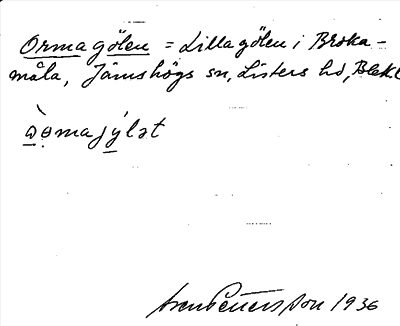 Ormagölen = Lillagölen i Broka-
måla, Jämshögs sn, Listers hd, Blek
Sven Pettersson 1936